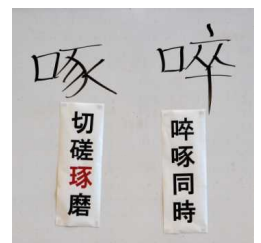 啄 啐
切磋琢磨
啐啄同時